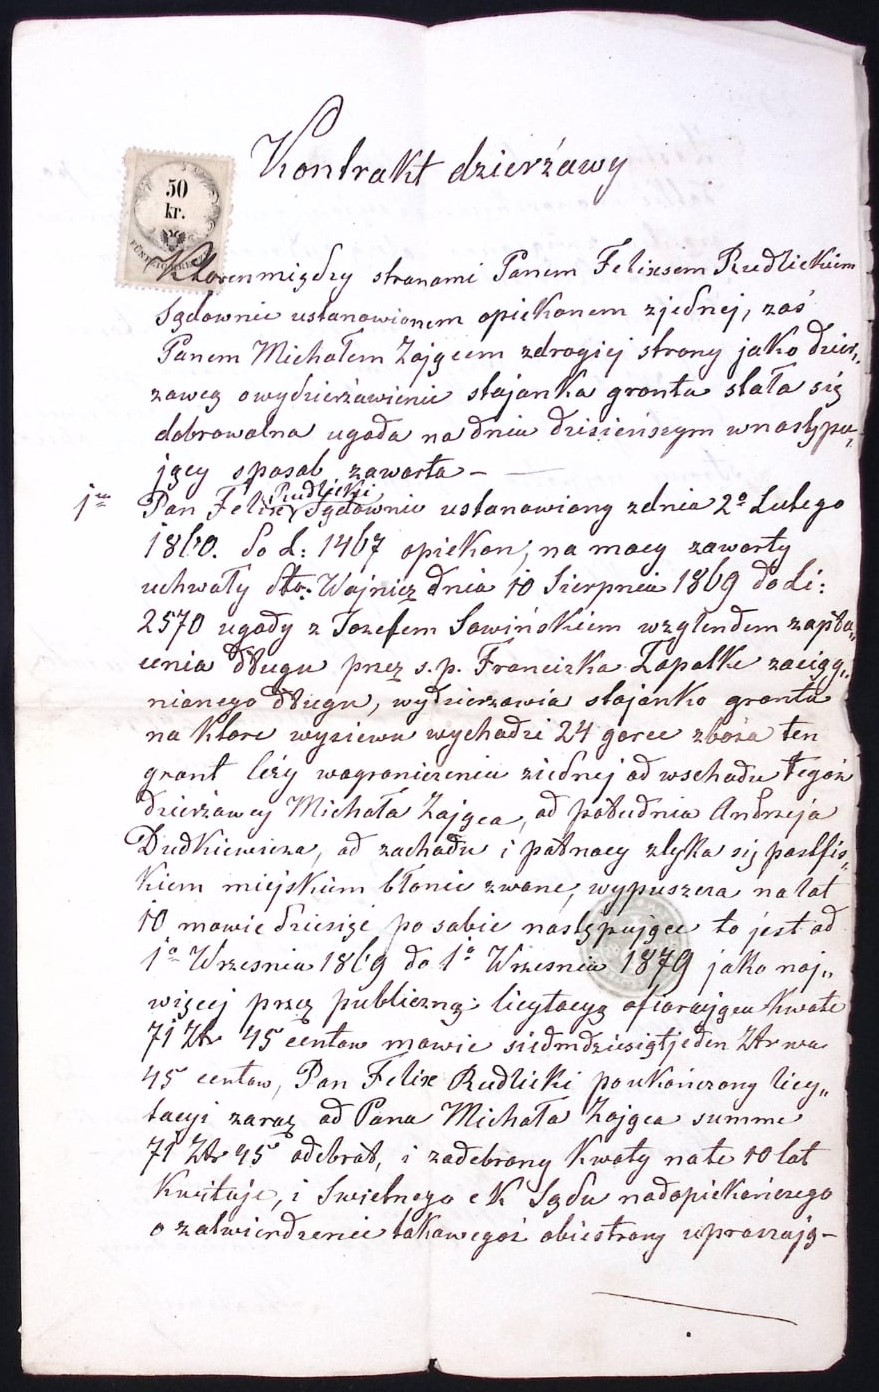 Kontrakt dzierżawy
50
kr.
FÜNFZIG KREUZER
Ktoren między stronami Panem Felixsem Rudlickiem
Sądownie ustanowionem opiekonem zjednej, zaś
Panem Michałem Zającem zdrogiej strony jako dzier„
zawcą owydzierżawienie stajonka grontu stała się
dobrowolna ugoda na dniu dzisieńszym wnastępu„
jący sposob zawarta –
1mo Pan Felix Rudlicki Sądownie ustanowiony zdnia 2o Lutego
1860. do L: 1467 opiekon, na mocy zawarty
uchwały dto: Wojnicz dnia 10 Sierpnia 1869 do Li:
2570 ugody z Jozefem Sowińskiem wzglendem zapła„
cenia długu przez s.p. Franciszka Zapałke zaciąg„
nionego długu, wydzierzawia stajonko grontu
na ktore wysiewu wychodzi 24 gorce zboża ten
gront leży wograniczeniu ziednej od wschodu tegoż
dzierżawcy Michała Zająca, od południa Andrzeja
Dudkiewicza, od zachodu i połnocy zlyka się postfis„
kiem miejskiem błonie zwane, wypuszcza na lat
10 mowie dziesięć po sobie następujące to jest od
1o Wrzesnia 1869 do 1o Wrzesnia 1879 jako naj„
więcej przez publiczną licytacyą ofiarującu kwote
71 Złr 45 centow mowie siedmdziesiątjeden Złr wa
45 centow, Pan Felix Rudlicki poukończony licy„
tacyi zaraz od Pana Michała Zająca summe
71 Złr 45 odebrał, i zodebrany kwoty na te 10 lat
kwituje, i Swietnego c K Sądu nadopiekończego
o zatwierdzenie takowegoż obiestrony upraszają –